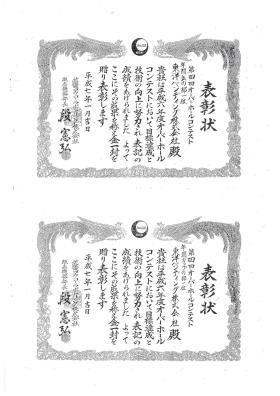 表彰状
第四回オーバーホールコンテスト
東洋ベンディング株式会社殿
貴社は平成六年度オーバーホール
コンテストにおいて目標達成と
技術の向上に努力され表記の
成績をあげられました よって
ここにその成果を称え金一封を
贈り表彰します
平成七年一月吉日
表彰状
第四回オーバーホールコンテスト
東洋ベンディング株式会社殿
貴社は平成六年度オーバーホール
コンテストにおいて目標達成と
技術の向上に努力され表記の
成績をあげられました よって
ここにその成果を称え金一封を
贈り表彰します
平成七年一月吉日